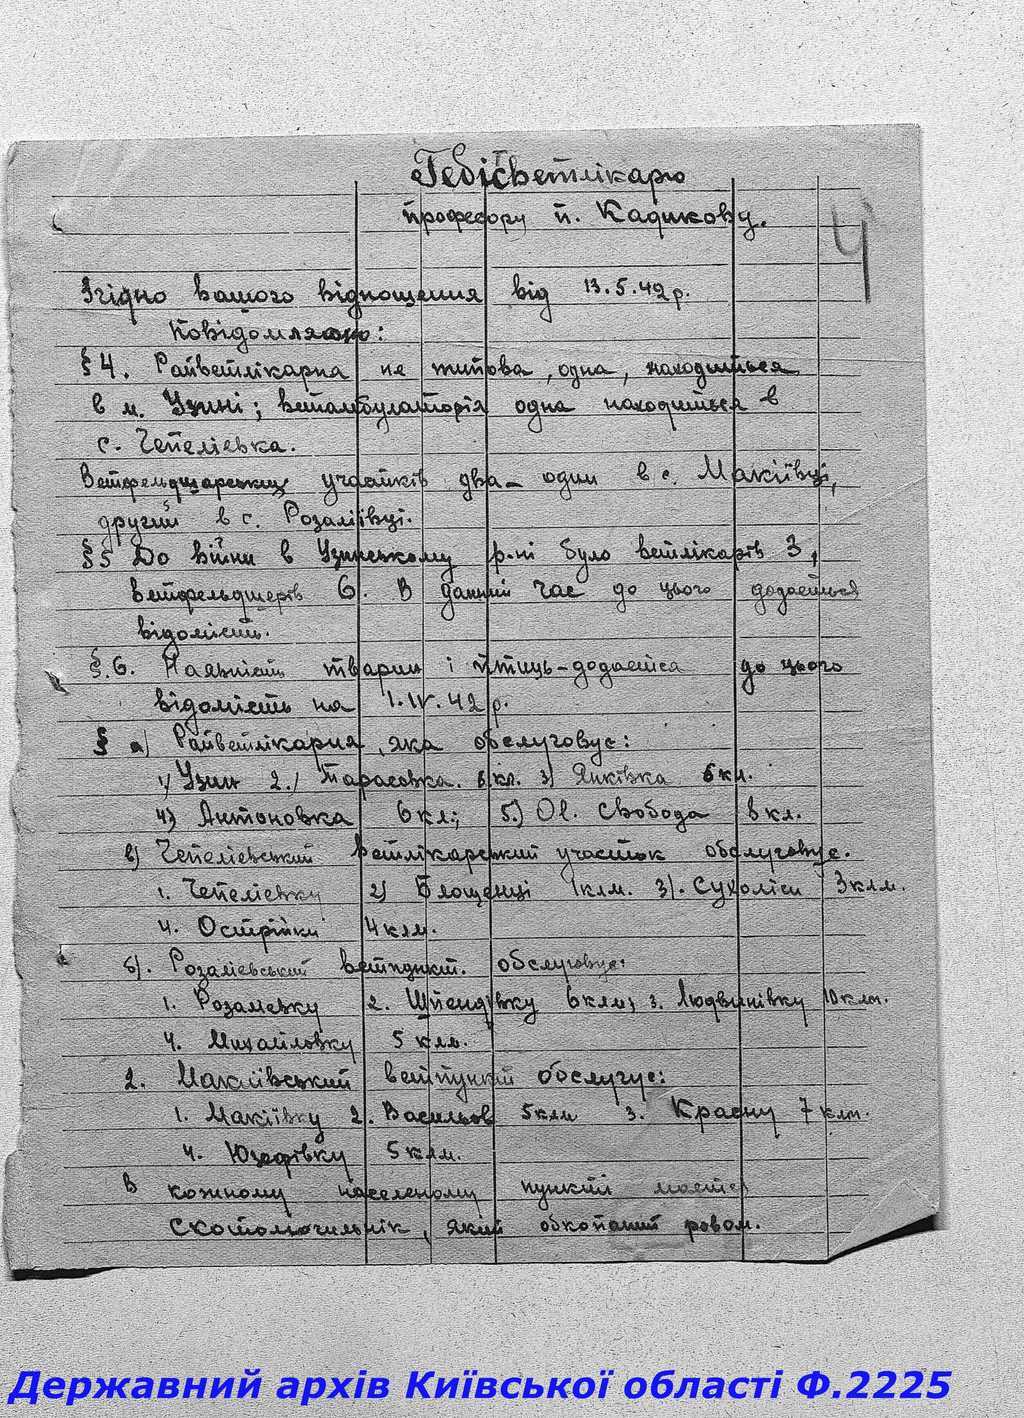 Гебісветлікарю
професору п. Кадикову.
4
Згідно вашого відношення від 13.5.42 р.
повідомляємо:
§ 4. Райветлікарна не типова, одна, находиться
в м. Узині; ветамбулаторія одна находиться в
с. Чепелієвка.
Ветфельдшарських участків два - один в с. Макіївці,
другий в с. Розаліївці.
§5 До війни в Узинському р-ні було ветлікарів 3,
ветфельдшерів 6. В данний час до цього додається
відомість.
§.6. Наявність тварин і птиць - додаєтса до цього
відомість на 1.IV.42 р.
§ а) Райветлікарня, яка обслуговує:
1) Узин 2.) Тарасовка. 8 кл. 3) Янківка 6 кл.
4) Антоновка 6 кл; 5.) Ол. Свобода 8 кл.
в) Чепелієвський ветлікарський участок обслуговує.
1. Чепелієвку 2) Блощенці 1 клм. 3). Сухоліси 3 клм.
4. Острійки 4 клм.
б). Розалієвський ветпункт. обслуговує:
1. Розалієвку 2. Шпендівку 6 клм; 3. Людвинівку 10 клм.
4. Михайловку 5 клм.
2. Макіївський ветпункт обслугує:
1. Макіївку 2. Васильов 5 клм 3. Красну 7 клм.
4. Юзефівку 5 клм.
В кожному населеному пункті маєтся
скотомогильнік, який обкопаний ровом.
Державний архів Київської області Ф.2225